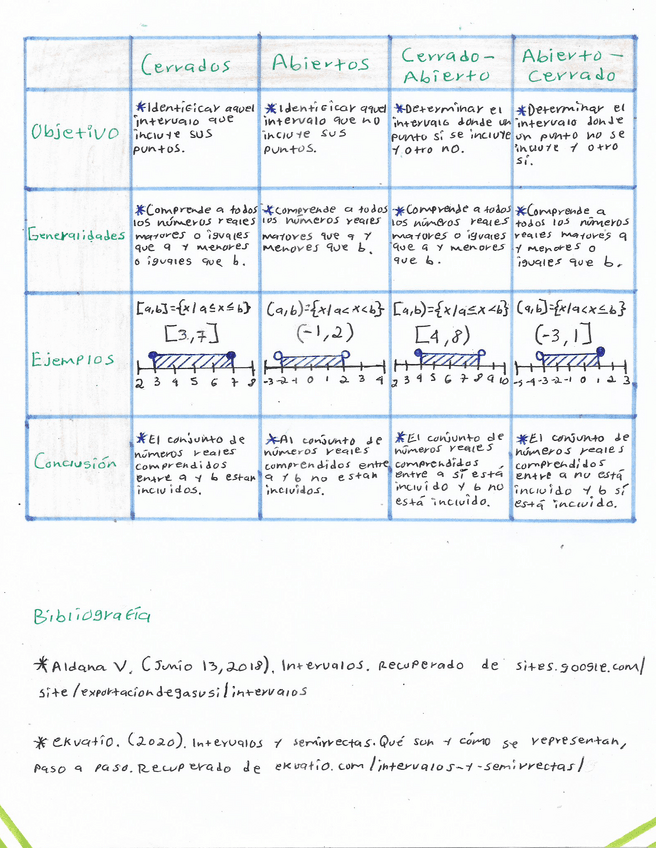 Cerrados
Abiertos
Cerrado-
Abierto
Abierto-
Cerrado
Objetivo
*Identificar aquel
intervalo que
incluye sus
puntos.
*Identificar aquel
intervalo que no
incluye sus
puntos.
*Determinar el
intervalo donde un
punto sí se incluye
y otro no.
*Determinar el
intervalo donde
un punto no se
incluye y otro
sí.
Generalidades
*Comprende a todos
los números reales
mayores o iguales
que a y menores
o iguales que b.
*Comprende a todos
los números reales
mayores que a y
menores que b.
*Comprende a todos
los números reales
mayores o iguales
que a y menores
que b.
*Comprende a
todos los números
reales mayores a
y menores o
iguales que b.
Ejemplos
[a,b]={x/a≤x≤b}
[3,7]
2 3 4 5 6 7 8
(a,b)={x/a<x<b}
(-1,2)
-3 -2 -1 0 1 2 3 4
[a,b)={x/a≤x<b}
[4,8)
2 3 4 5 6 7 8 9 10
(a,b]={x/a<x≤b}
(-3,1]
-5 -4 -3 -2 -1 0 1 2 3
Conclusión
*El conjunto de
números reales
comprendidos
entre a y b estan
incluidos.
*Al conjunto de
números reales
comprendidos entre
a y b no estan
incluidos.
*El conjunto de
números reales
comprendidos
entre a sí está
incluido y b no
está incluido.
*El conjunto de
números reales
comprendidos
entre a no está
incluido y b sí
está incluido.
Bibliografía
*Aldana V. (Junio 13,2018). Intervalos. Recuperado de sites.google.com/
site/exportaciondegasusi/intervalos
*ekuatio. (2020). Intervalos y semirrectas. Qué son y cómo se representan,
paso a paso. Recuperado de ekuatio.com/intervalos-y-semirrectas/